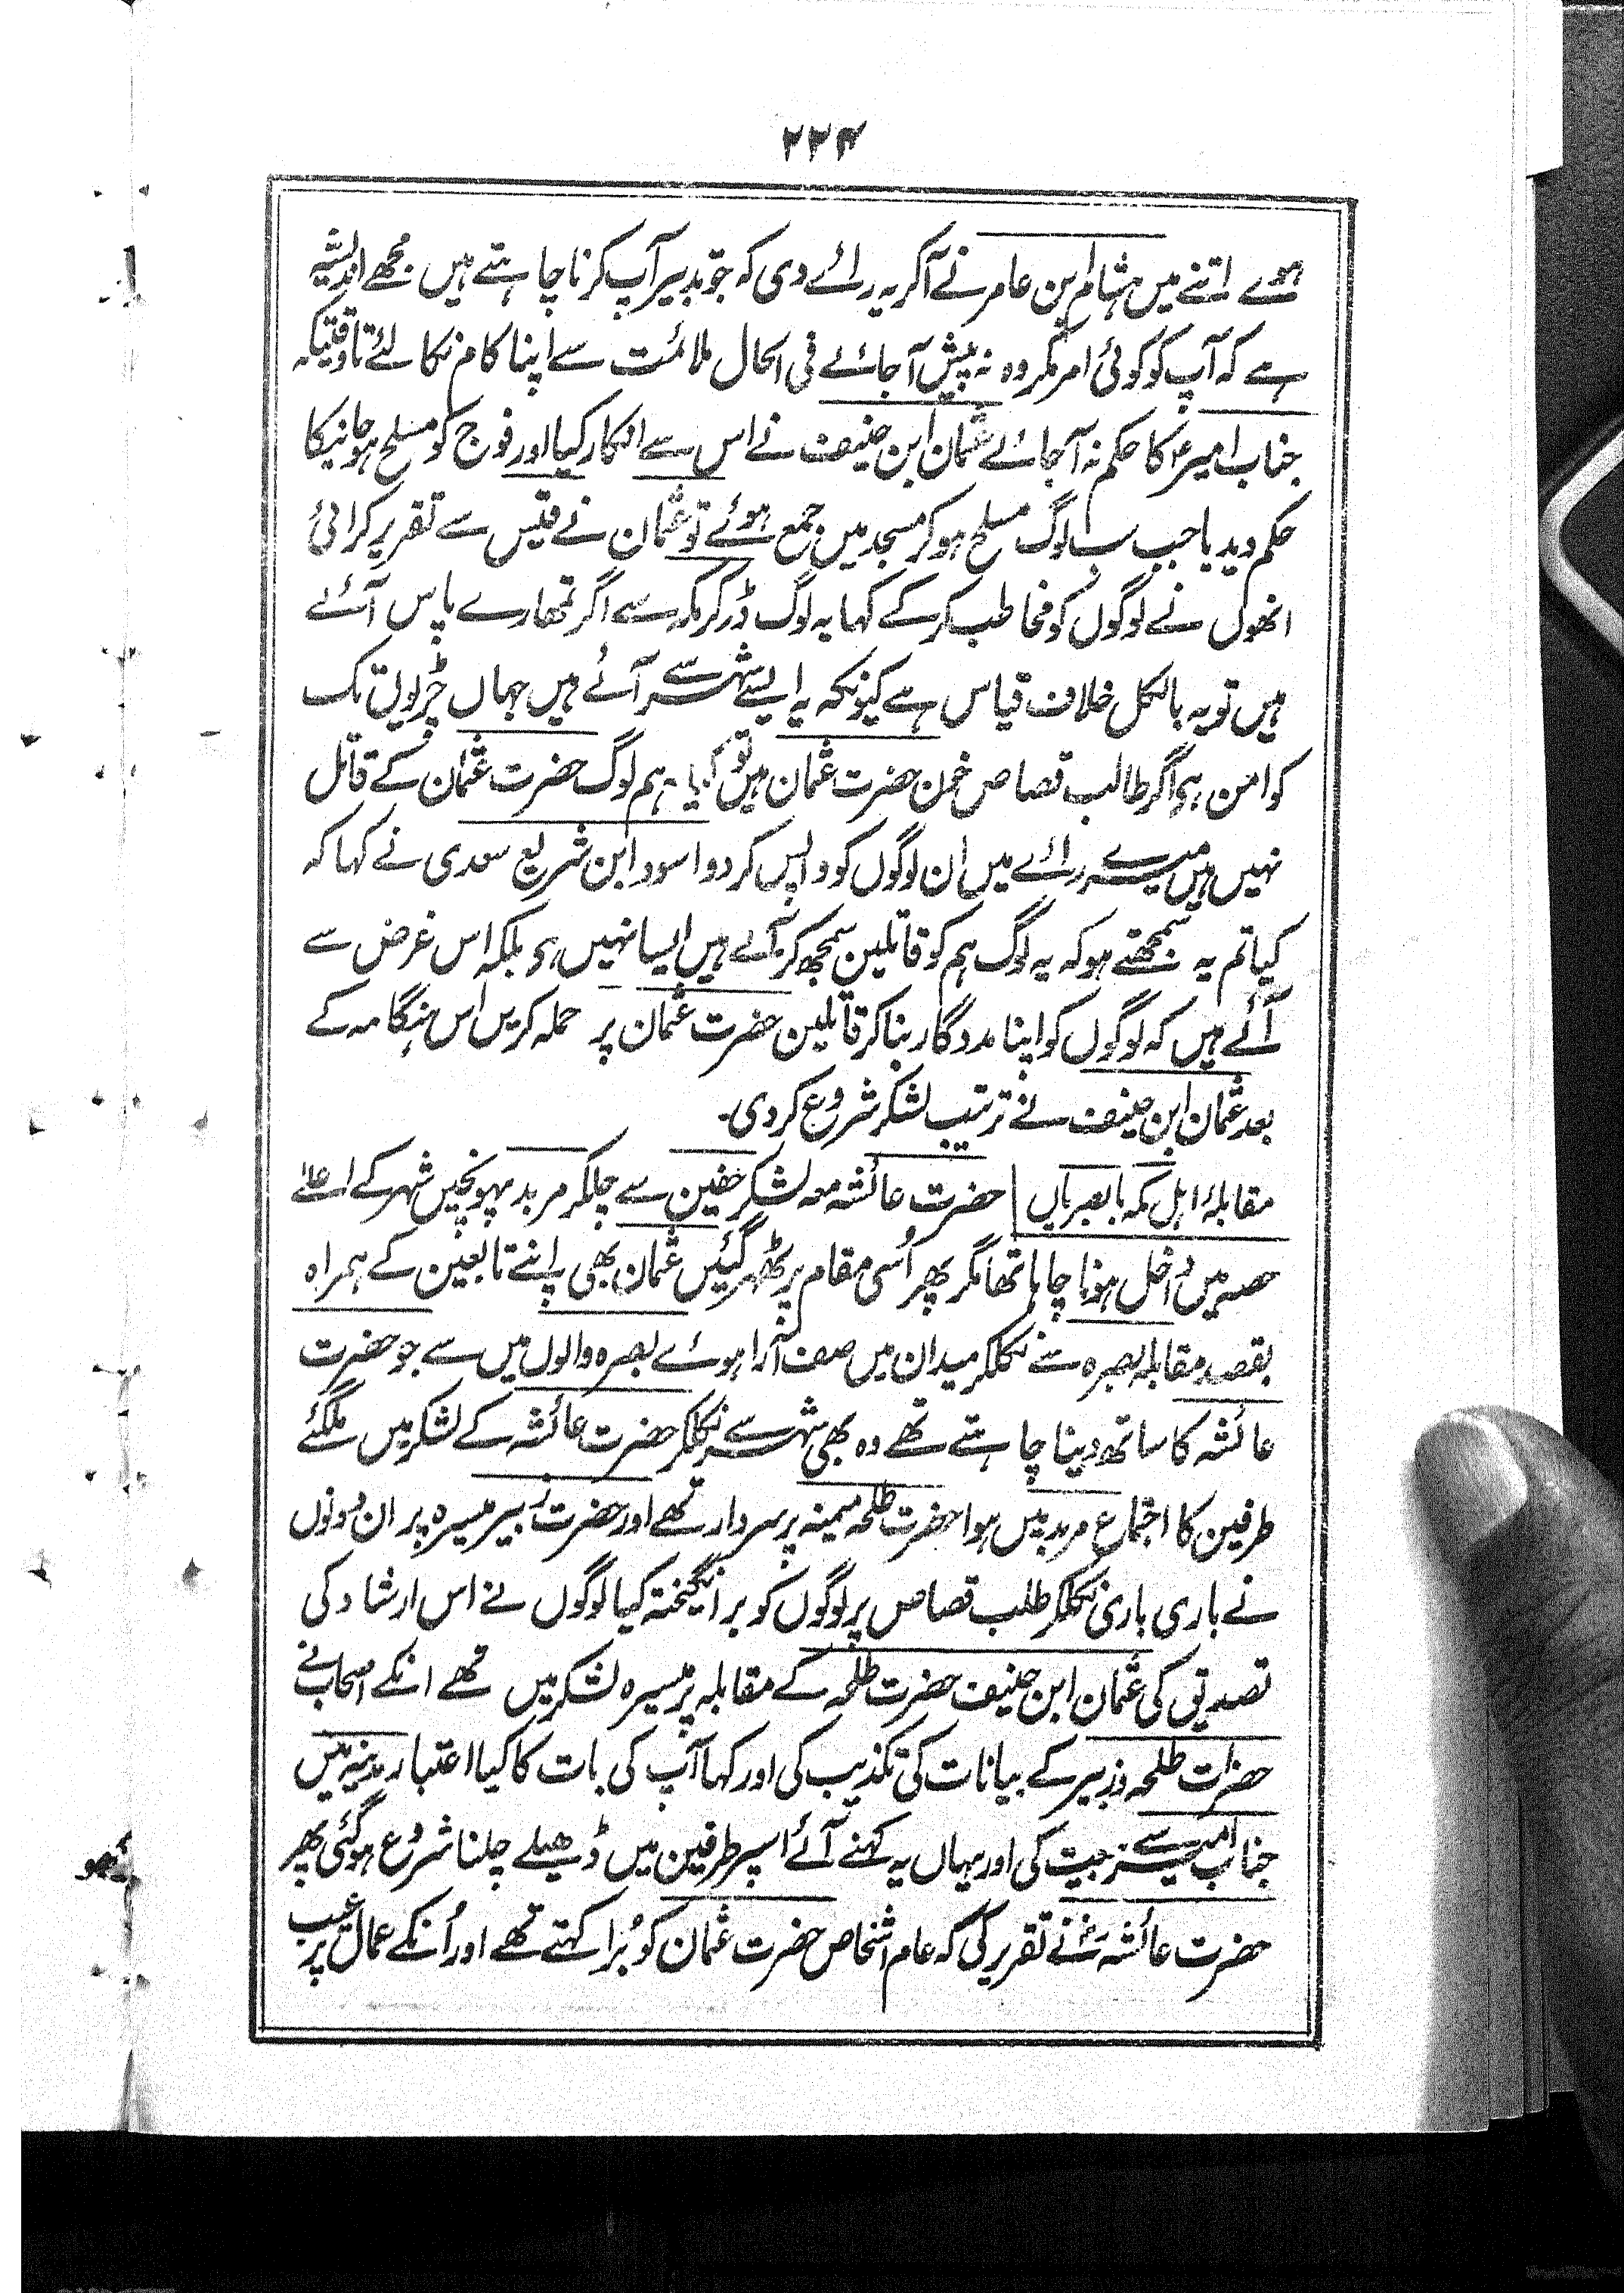 ۲۲۴
ہوے اتنے میں ہشام بن عامر نے آکر یہ رائے دی کہ جو تدبیر آپ کرنا چاہتے ہیں مجھے اندیشہ
ہے کہ آپ کو کوئی امر مکروہ نہ پیش آجائے فی الحال ملائمت سے اپنا کام نکالئے تاوقتیکہ
جناب امیرؑ کا حکم نہ آجائے عثمان ابن حنیف نے اس سے انکار کیا اور فوج کو مسلح ہوجانیکا
حکم دیدیا جب سب لوگ مسلح ہوکر مسجد میں جمع ہوئے تو عثمان نے قیس سے تقریر کرائی
انھوں نے لوگوں کو مخاطب کرکے کہا یہ لوگ ڈر کر مکہ سے اگر تمھارے پاس آئے
ہیں تو یہ بالکل خلاف قیاس ہے کیونکہ یہ ایسے شہر سے آئے ہیں جہاں چڑیوں تک
کو امن ہی اگر طالب قصاص خون حضرت عثمان ہیں تو کیا۔ ہم لوگ حضرت عثمان کے قاتل
نہیں ہیں میرے رائے میں ان لوگوں کو واپس کردو اسود ابن شریع سعدی نے کہا کہ
کیا تم یہ سمجھتے ہو کہ یہ لوگ ہم کو قاتلین سمجھ کر آے ہیں ایسا نہیں ہی بلکہ اس غرض سے
آئے ہیں کہ لوگوں کو اپنا مددگار بناکر قاتلین حضرت عثمان پر حملہ کریں اس ہنگامہ کے
بعد عثمان ابن حنیف نے ترتیب لشکر شروع کردی۔
مقابلۂ اہل مکہ با بصریاں حضرت عائشہ معہ لشکر حفین سے چلکر مربد پہونچیں شہر کے اعلے
حصہ میں داخل ہونا چاہا تھا مگر پھر اُسی مقام پر ٹھہر گئیں عثمان بھی اپنے تابعین کے ہمراہ
بقصد مقابلہ بصرہ سے نکلکر میدان میں صف آرا ہوئے بصرہ والوں میں سے جو حضرت
عائشہ کا ساتھ دینا چاہتے تھے وہ بھی شہر سے نکلکر حضرت عائشہ کے لشکر میں ملگئے
طرفین کا اجتماع مربد میں ہوا حضرت طلحہ میمنہ پر سردار تھے اور حضرت زبیر میسرہ پر ان دونوں
نے باری باری نکلکر طلب قصاص پر لوگوں کو برانگیختہ کیا لوگوں نے اس ارشاد کی
تصدیق کی عثمان ابن حنیف حضرت طلحہ کے مقابلہ پر میسرہ لشکر میں تھے انکے اصحاب نے
حضرات طلحہ وزبیر کے بیانات کی تکذیب کی اور کہا آپ کی بات کا کیا اعتبار مدینہ میں
جناب امیر سے بیعت کی اور یہاں یہ کہنے آئے اسپر طرفین میں ڈھیلے چلنا شروع ہوگئی پھر
حضرت عائشہ نے تقریر کی کہ عام اشخاص حضرت عثمان کو بُرا کہتے تھے اور اُنکے عمال پر عیب